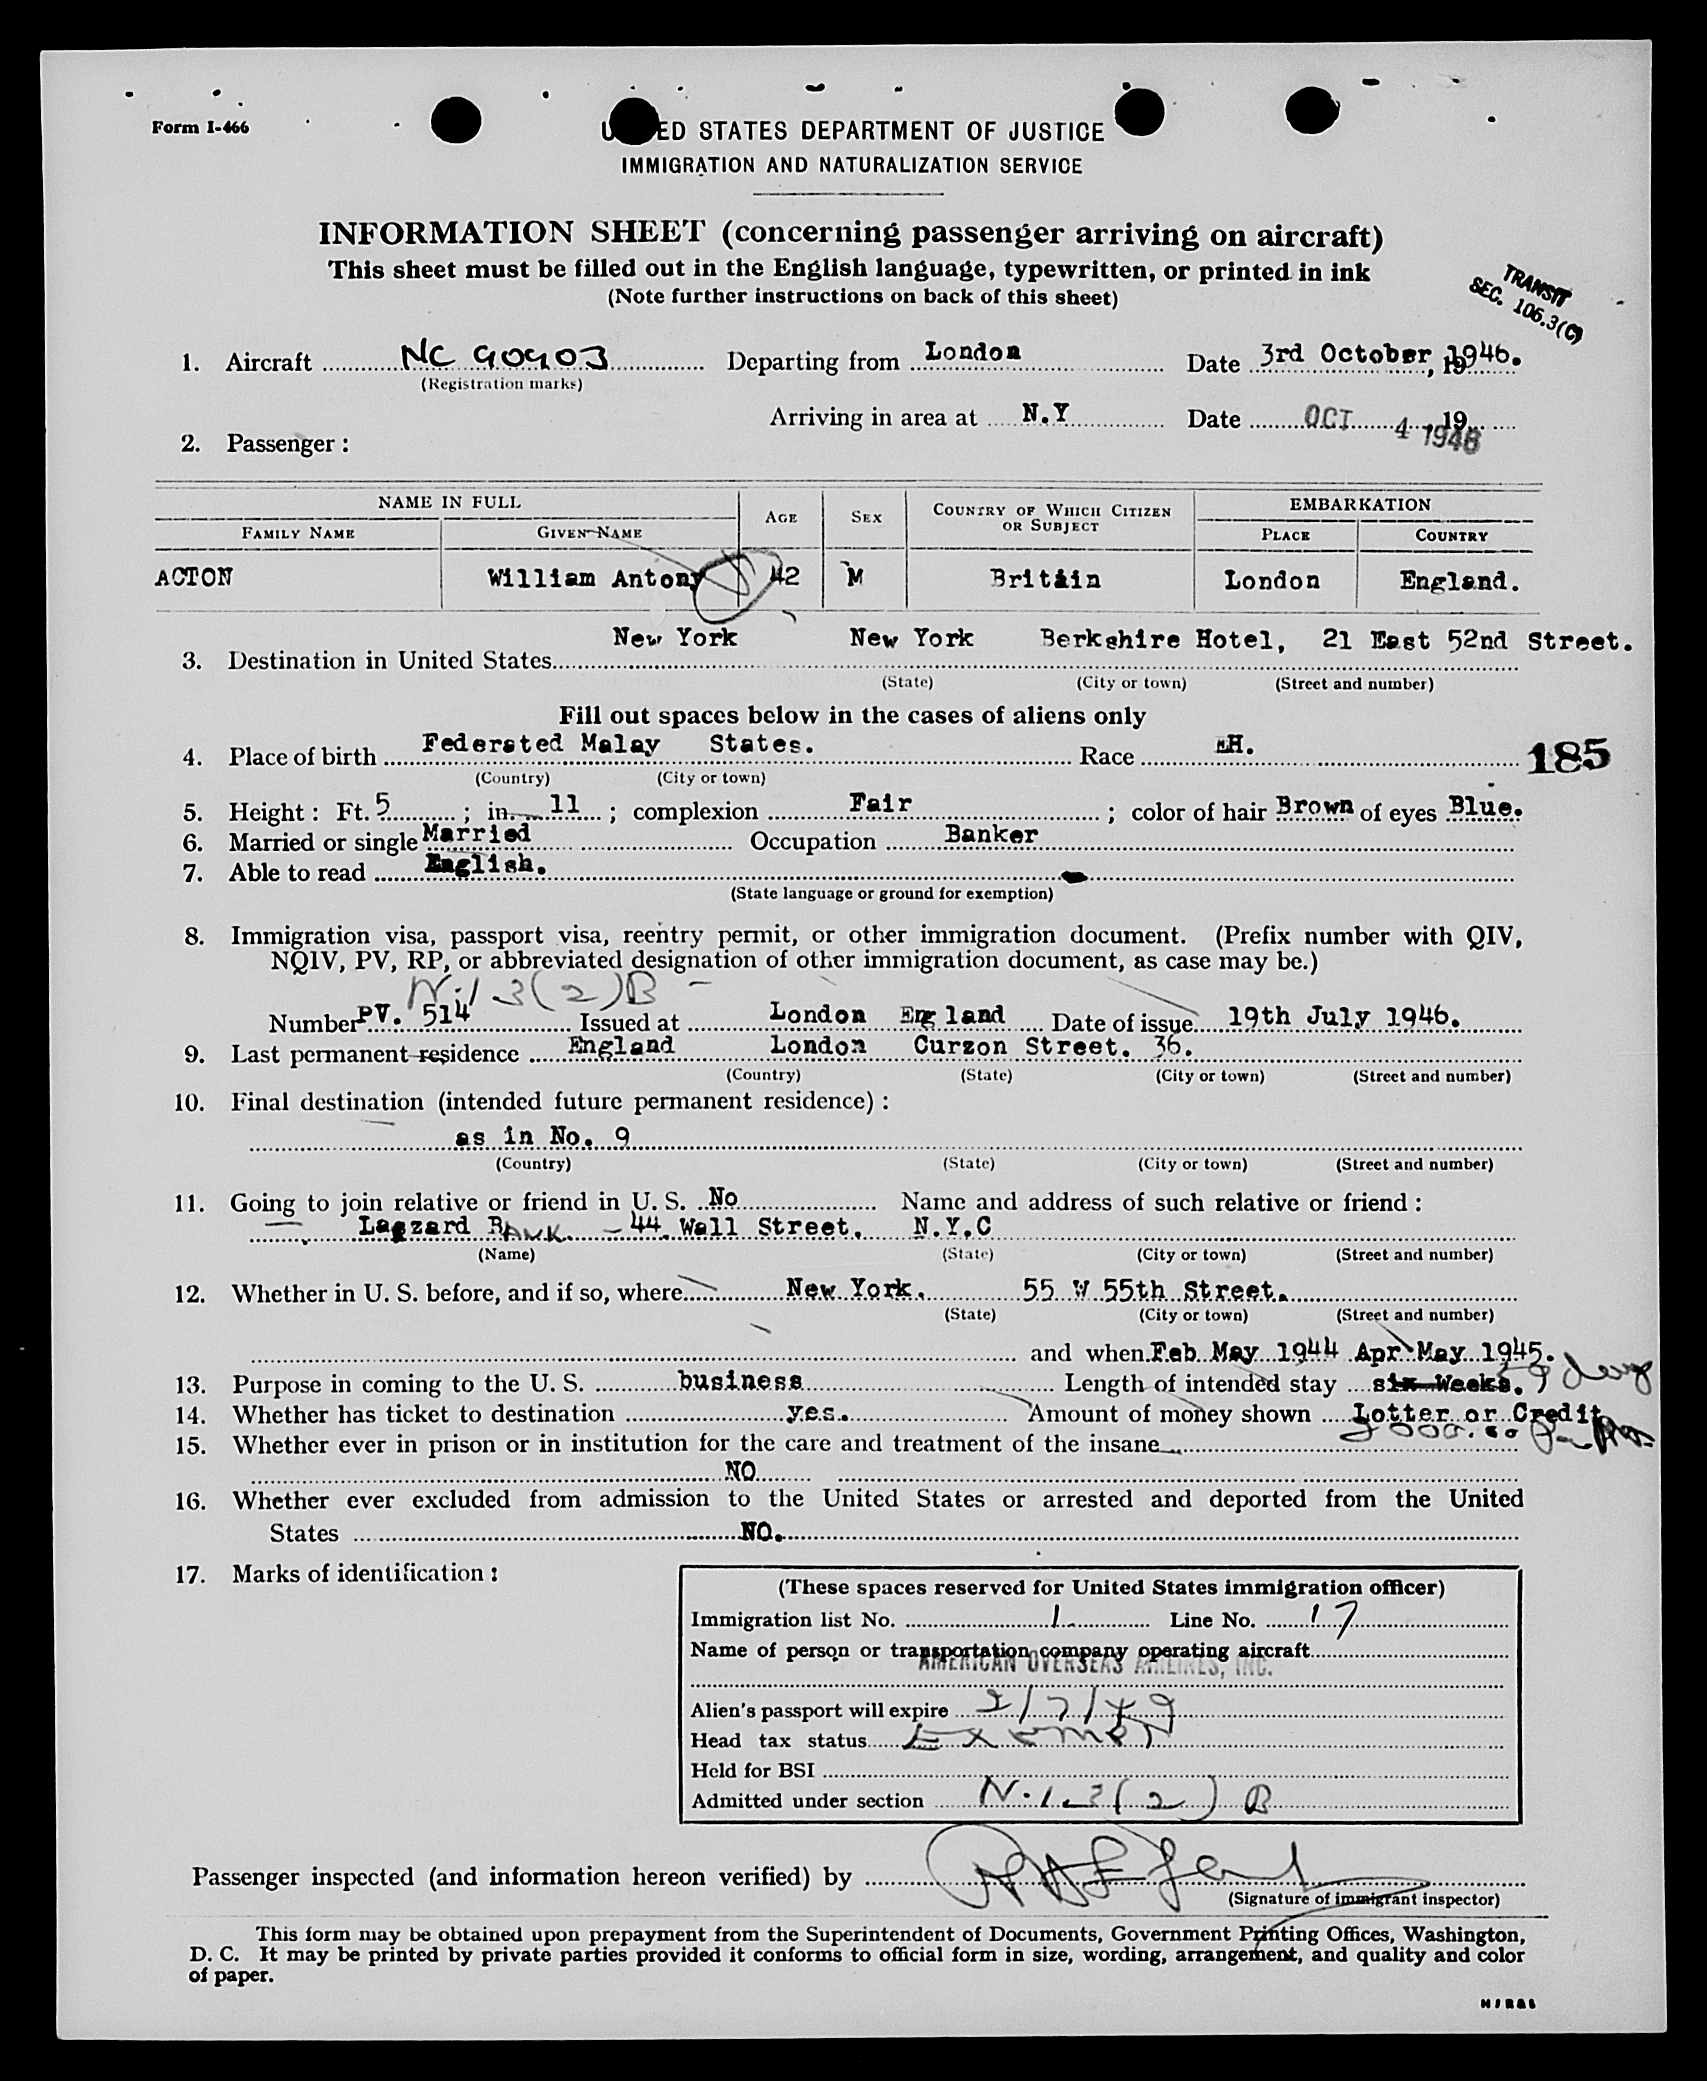 Form I-466
ED STATES DEPARTMENT OF JUSTICE
IMMIGRATION AND NATURALIZATION SERVICE
INFORMATION SHEET (concerning passenger arriving on aircraft)
This sheet must be filled out in the English language, typewritten, or printed in ink
(Note further instructions on back of this sheet)
TRANSIT
SEC. 106.3(C)
1. Aircraft NC 90903 Departing from London Date 3rd October, 1946.
(Registration marks)
Arriving in area at N.Y Date OCT 4 1946 , 19
2. Passenger :
NAME IN FULL AGE SEX COUNTRY OF WHICH CITIZEN OR SUBJECT EMBARKATION
FAMILY NAME GIVEN NAME PLACE COUNTRY
ACTON William Antony 42 M Britain London England.
New York New York Berkshire Hotel, 21 East 52nd Street.
3. Destination in United States
(State) (City or town) (Street and number)
Fill out spaces below in the cases of aliens only
4. Place of birth Federated Malay States. Race H. 185
(Country) (City or town)
5. Height : Ft. 5 ; in. 11 ; complexion Fair ; color of hair Brown of eyes Blue.
6. Married or single Married Occupation Banker
7. Able to read English.
(State language or ground for exemption)
8. Immigration visa, passport visa, reentry permit, or other immigration document. (Prefix number with QIV,
NQIV, PV, RP, or abbreviated designation of other immigration document, as case may be.)
3(2)B
Number PV. 514 Issued at London England Date of issue 19th July 1946.
9. Last permanent residence England London Curzon Street. 36.
(Country) (State) (City or town) (Street and number)
10. Final destination (intended future permanent residence) :
as in No. 9
(Country) (State) (City or town) (Street and number)
11. Going to join relative or friend in U. S. No Name and address of such relative or friend :
Lazzard BANK. - 44 Wall Street. N.Y.C
(Name) (State) (City or town) (Street and number)
12. Whether in U. S. before, and if so, where New York. 55 W 55th Street.
(State) (City or town) (Street and number)
and when Feb May 1944 Apr May 1945.
13. Purpose in coming to the U. S. business Length of intended stay six Weeks. 59 days
14. Whether has ticket to destination yes. Amount of money shown Lotter or Credit
15. Whether ever in prison or in institution for the care and treatment of the insane
NO
16. Whether ever excluded from admission to the United States or arrested and deported from the United
States NO.
17. Marks of identification :
(These spaces reserved for United States immigration officer)
Immigration list No. 1 Line No. 17
Name of person or transportation company operating aircraft
AMERICAN OVERSEAS AIRLINES, INC.
Alien's passport will expire 2/7/49
Head tax status EXEMPT
Held for BSI
Admitted under section 3(2) B
Passenger inspected (and information hereon verified) by
(Signature of immigrant inspector)
This form may be obtained upon prepayment from the Superintendent of Documents, Government Printing Offices, Washington,
D. C. It may be printed by private parties provided it conforms to official form in size, wording, arrangement, and quality and color
of paper.